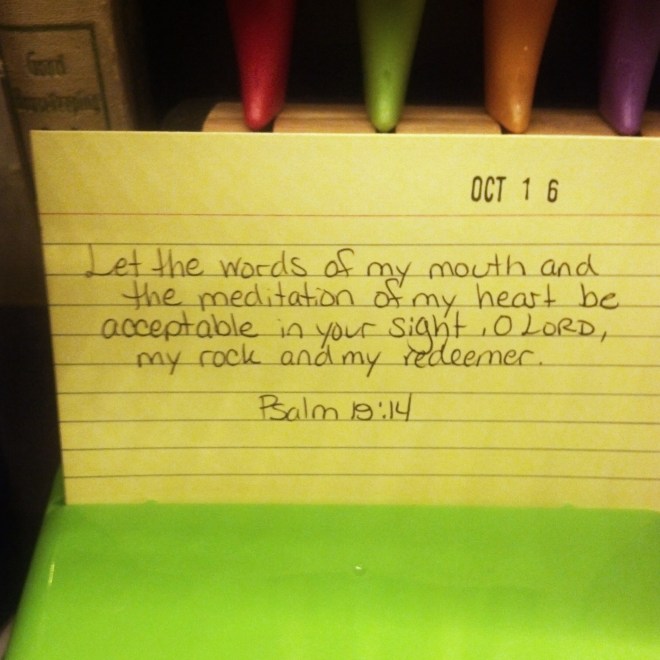 Good
Housekeeping
OCT 16
Let the words of my mouth and
the meditation of my heart be
acceptable in your sight, O LORD,
my rock and my redeemer.
Psalm 19:14